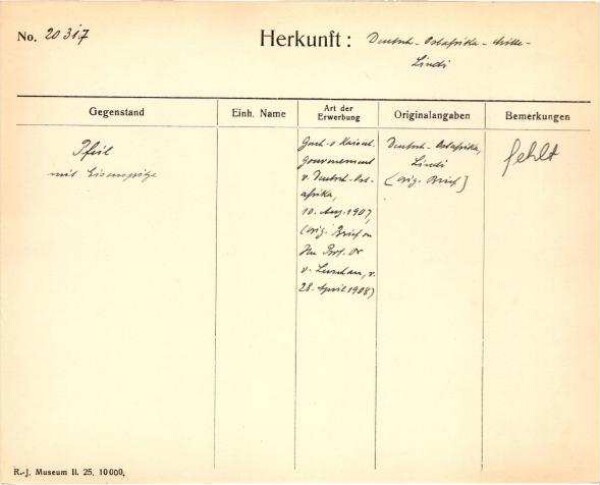 No. 20317
Herkunft: Deutsch-Ostafrika-
Lindi
Gegenstand
Einh. Name
Art der
Erwerbung
Originalangaben
Bemerkungen
Pfeil
mit Eisenspitze
Gesch. v. Kaiserl.
Gouvernement
v. Deutsch-Ost-
afrika,
10. Aug. 1907,
(orig. Brief an
Hn Prof. Dr
v. Luschan, v.
28. April 1908)
Deutsch-Ostafrika,
Lindi
(orig. Brief]
fehlt
R.-J. Museum II. 25. 10000.